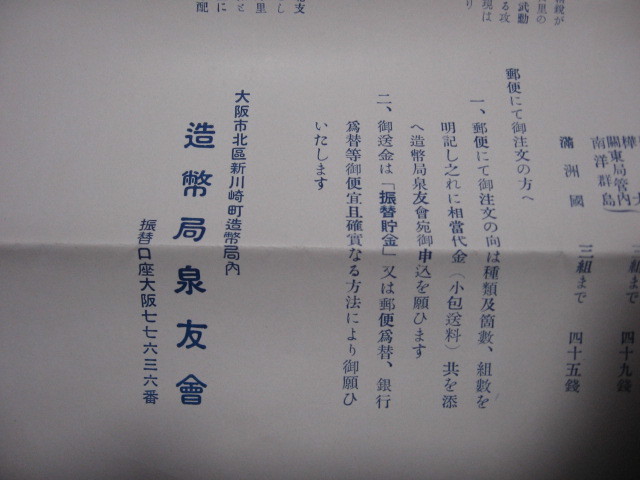 樺
關東局管內
南洋群島
三組まで 四十九錢
滿洲國 三組まで 四十五錢
郵便にて御注文の方へ
一、郵便にて御注文の向は種類及箇數、組數を
明記し之れに相當代金(小包送料)共を添
へ造幣局泉友會宛御申込を願ひます
二、御送金は「振替貯金」又は郵便爲替、銀行
爲替等御便宜且確實なる方法により御願ひ
いたします
大阪市北區新川崎町造幣局內
造幣局泉友會
振替口座大阪七七六三六番